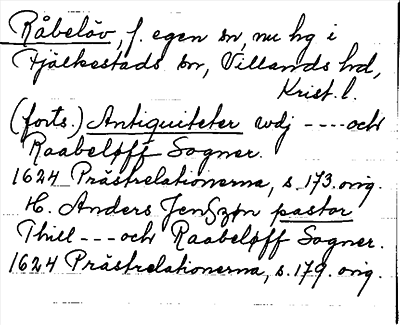 Råbelöv, f. egen sn, nu hg i
Fjälkestads sn, Villands hd,
Krist. l.
(forts.) Antiquiteter wdj ---- och
Raabeløff Sogner.
1624 Prästrelationerna, s. 173. orig.
H. Anders Jenszøn pastor
Thill --- och Raabeløff Sogner.
1624 Prästrelationerna, s. 179. orig.